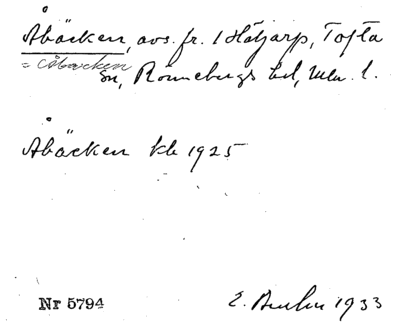 Åbäcken, avs. fr. 1 Hötjarp, Tofta
= Åbäcken
sn, Rönnebergs hd, Mlm. l.
Åbäcken kb 1925
Nr 5794
E. 1933